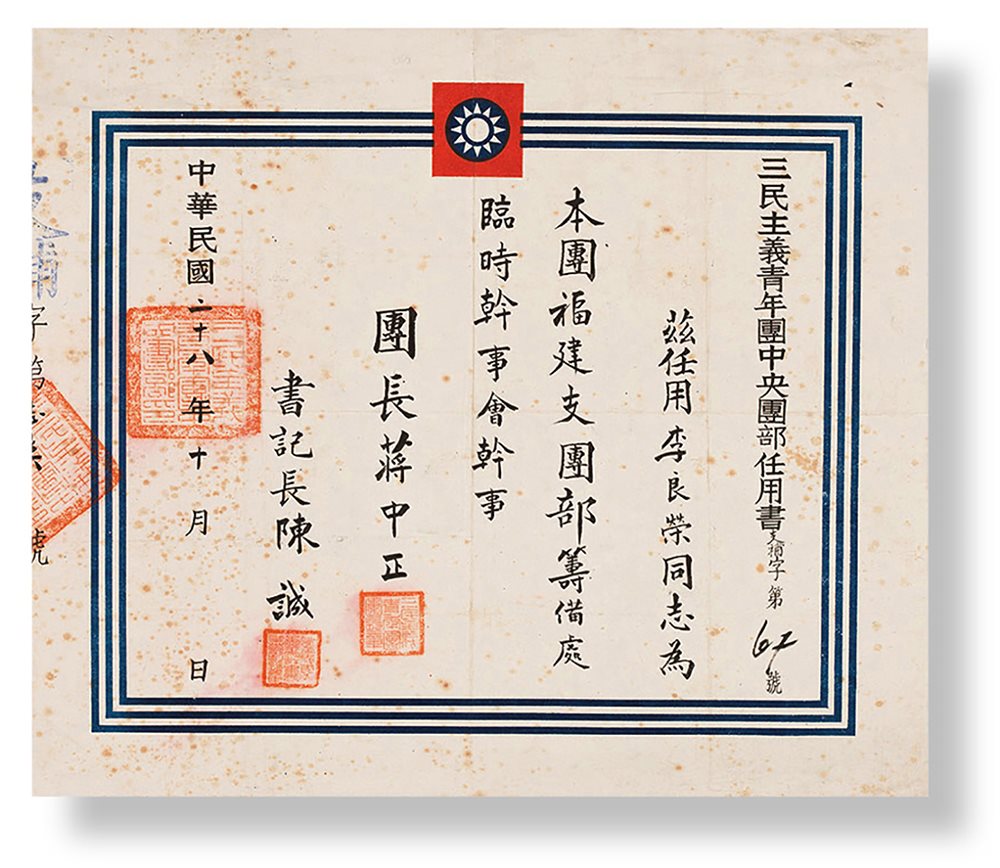 三民主義青年團中央團部任用書支補字第62號
茲任用李良榮同志為
本團福建支團部籌備處
臨時幹事會幹事
團長蔣中正
書記長陳誠
中華民國二十八年十月 日
字第 號